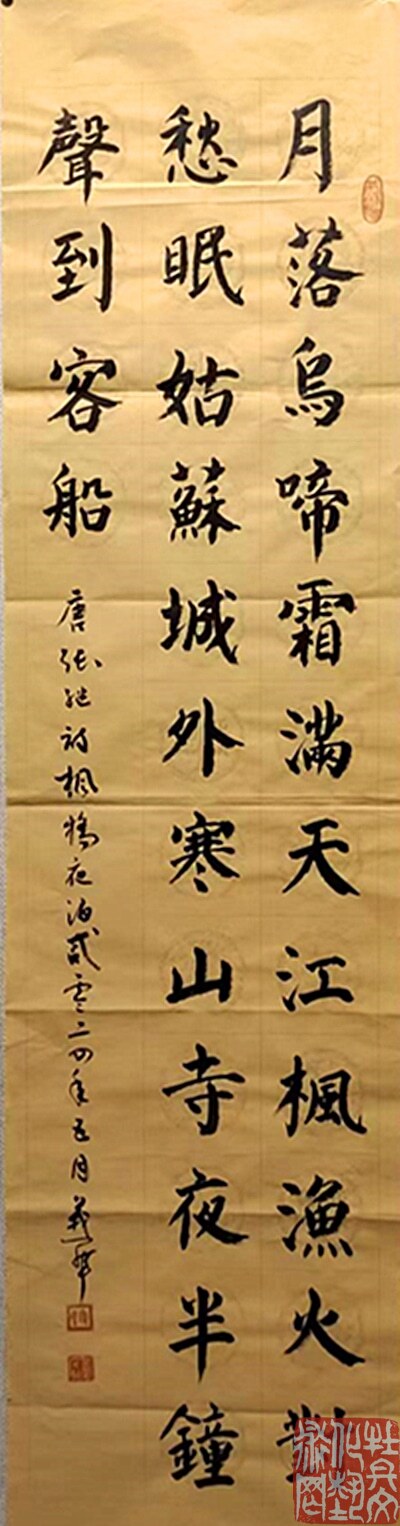 月落烏啼霜滿天江楓漁火對
愁眠姑蘇城外寒山寺夜半鐘
聲到客船
唐張继詩楓橋夜泊貳零二四年五月